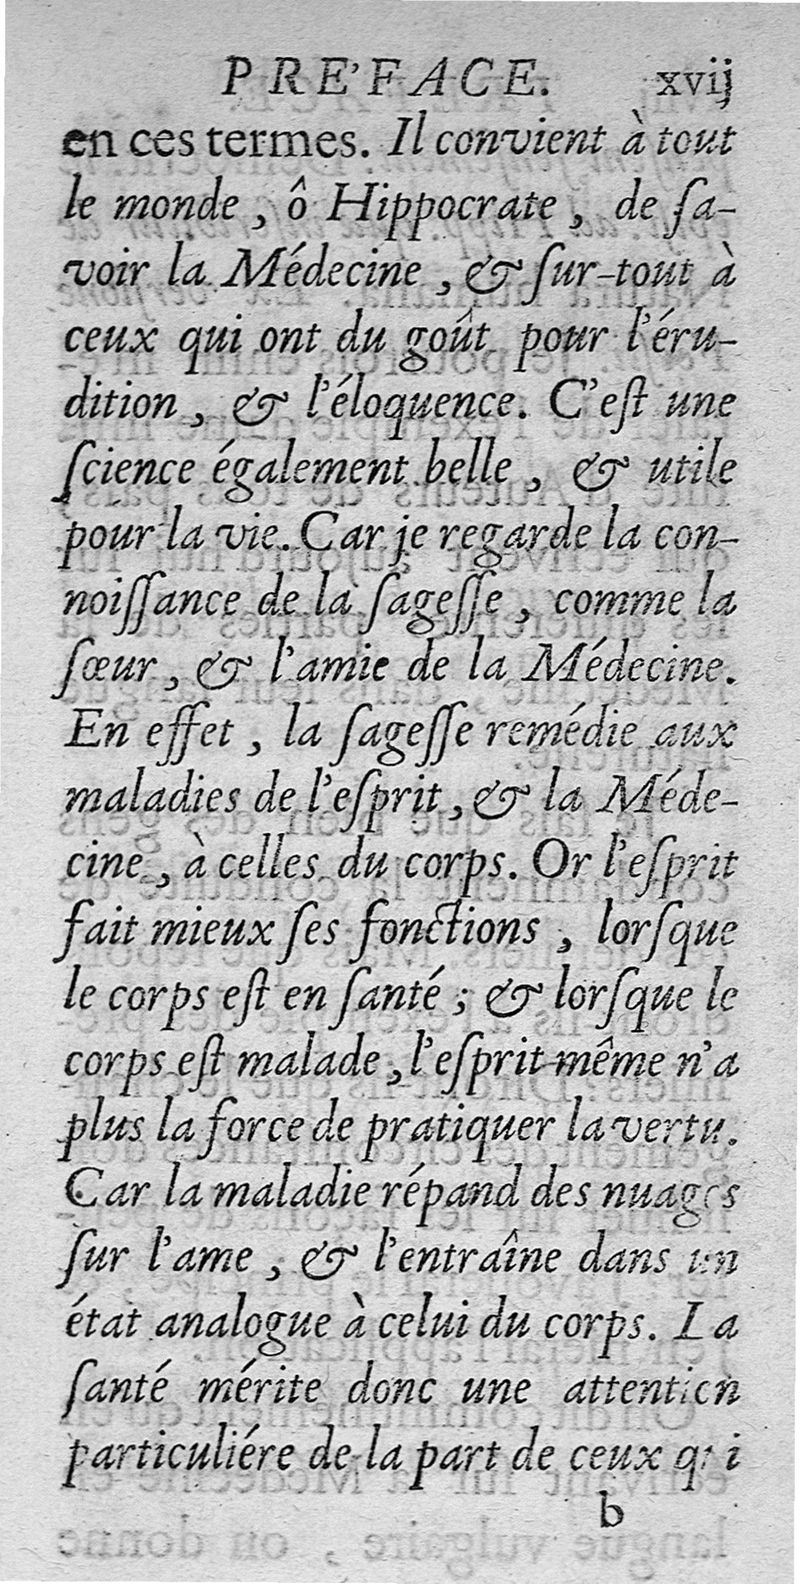 PRE'FACE. xvij
en ces termes. Il convient à tout
le monde, ô Hippocrate, de ſa-
voir la Médecine, & ſur-tout à
ceux qui ont du goût pour l'éru-
dition, & l'éloquence. C'eſt une
ſcience également belle, & utile
pour la vie. Car je regarde la con-
noiſſance de la ſageſſe, comme la
ſœur, & l'amie de la Médecine.
En effet, la ſageſſe remédie aux
maladies de l'eſprit, & la Méde-
cine, à celles du corps. Or l'eſprit
fait mieux ſes fonctions, lorſque
le corps eſt en ſanté; & lorſque le
corps eſt malade, l'eſprit même n'a
plus la force de pratiquer la vertu.
Car la maladie répand des nuages
ſur l'ame, & l'entraîne dans un
état analogue à celui du corps. La
ſanté mérite donc une attention
particuliére de la part de ceux qui
b